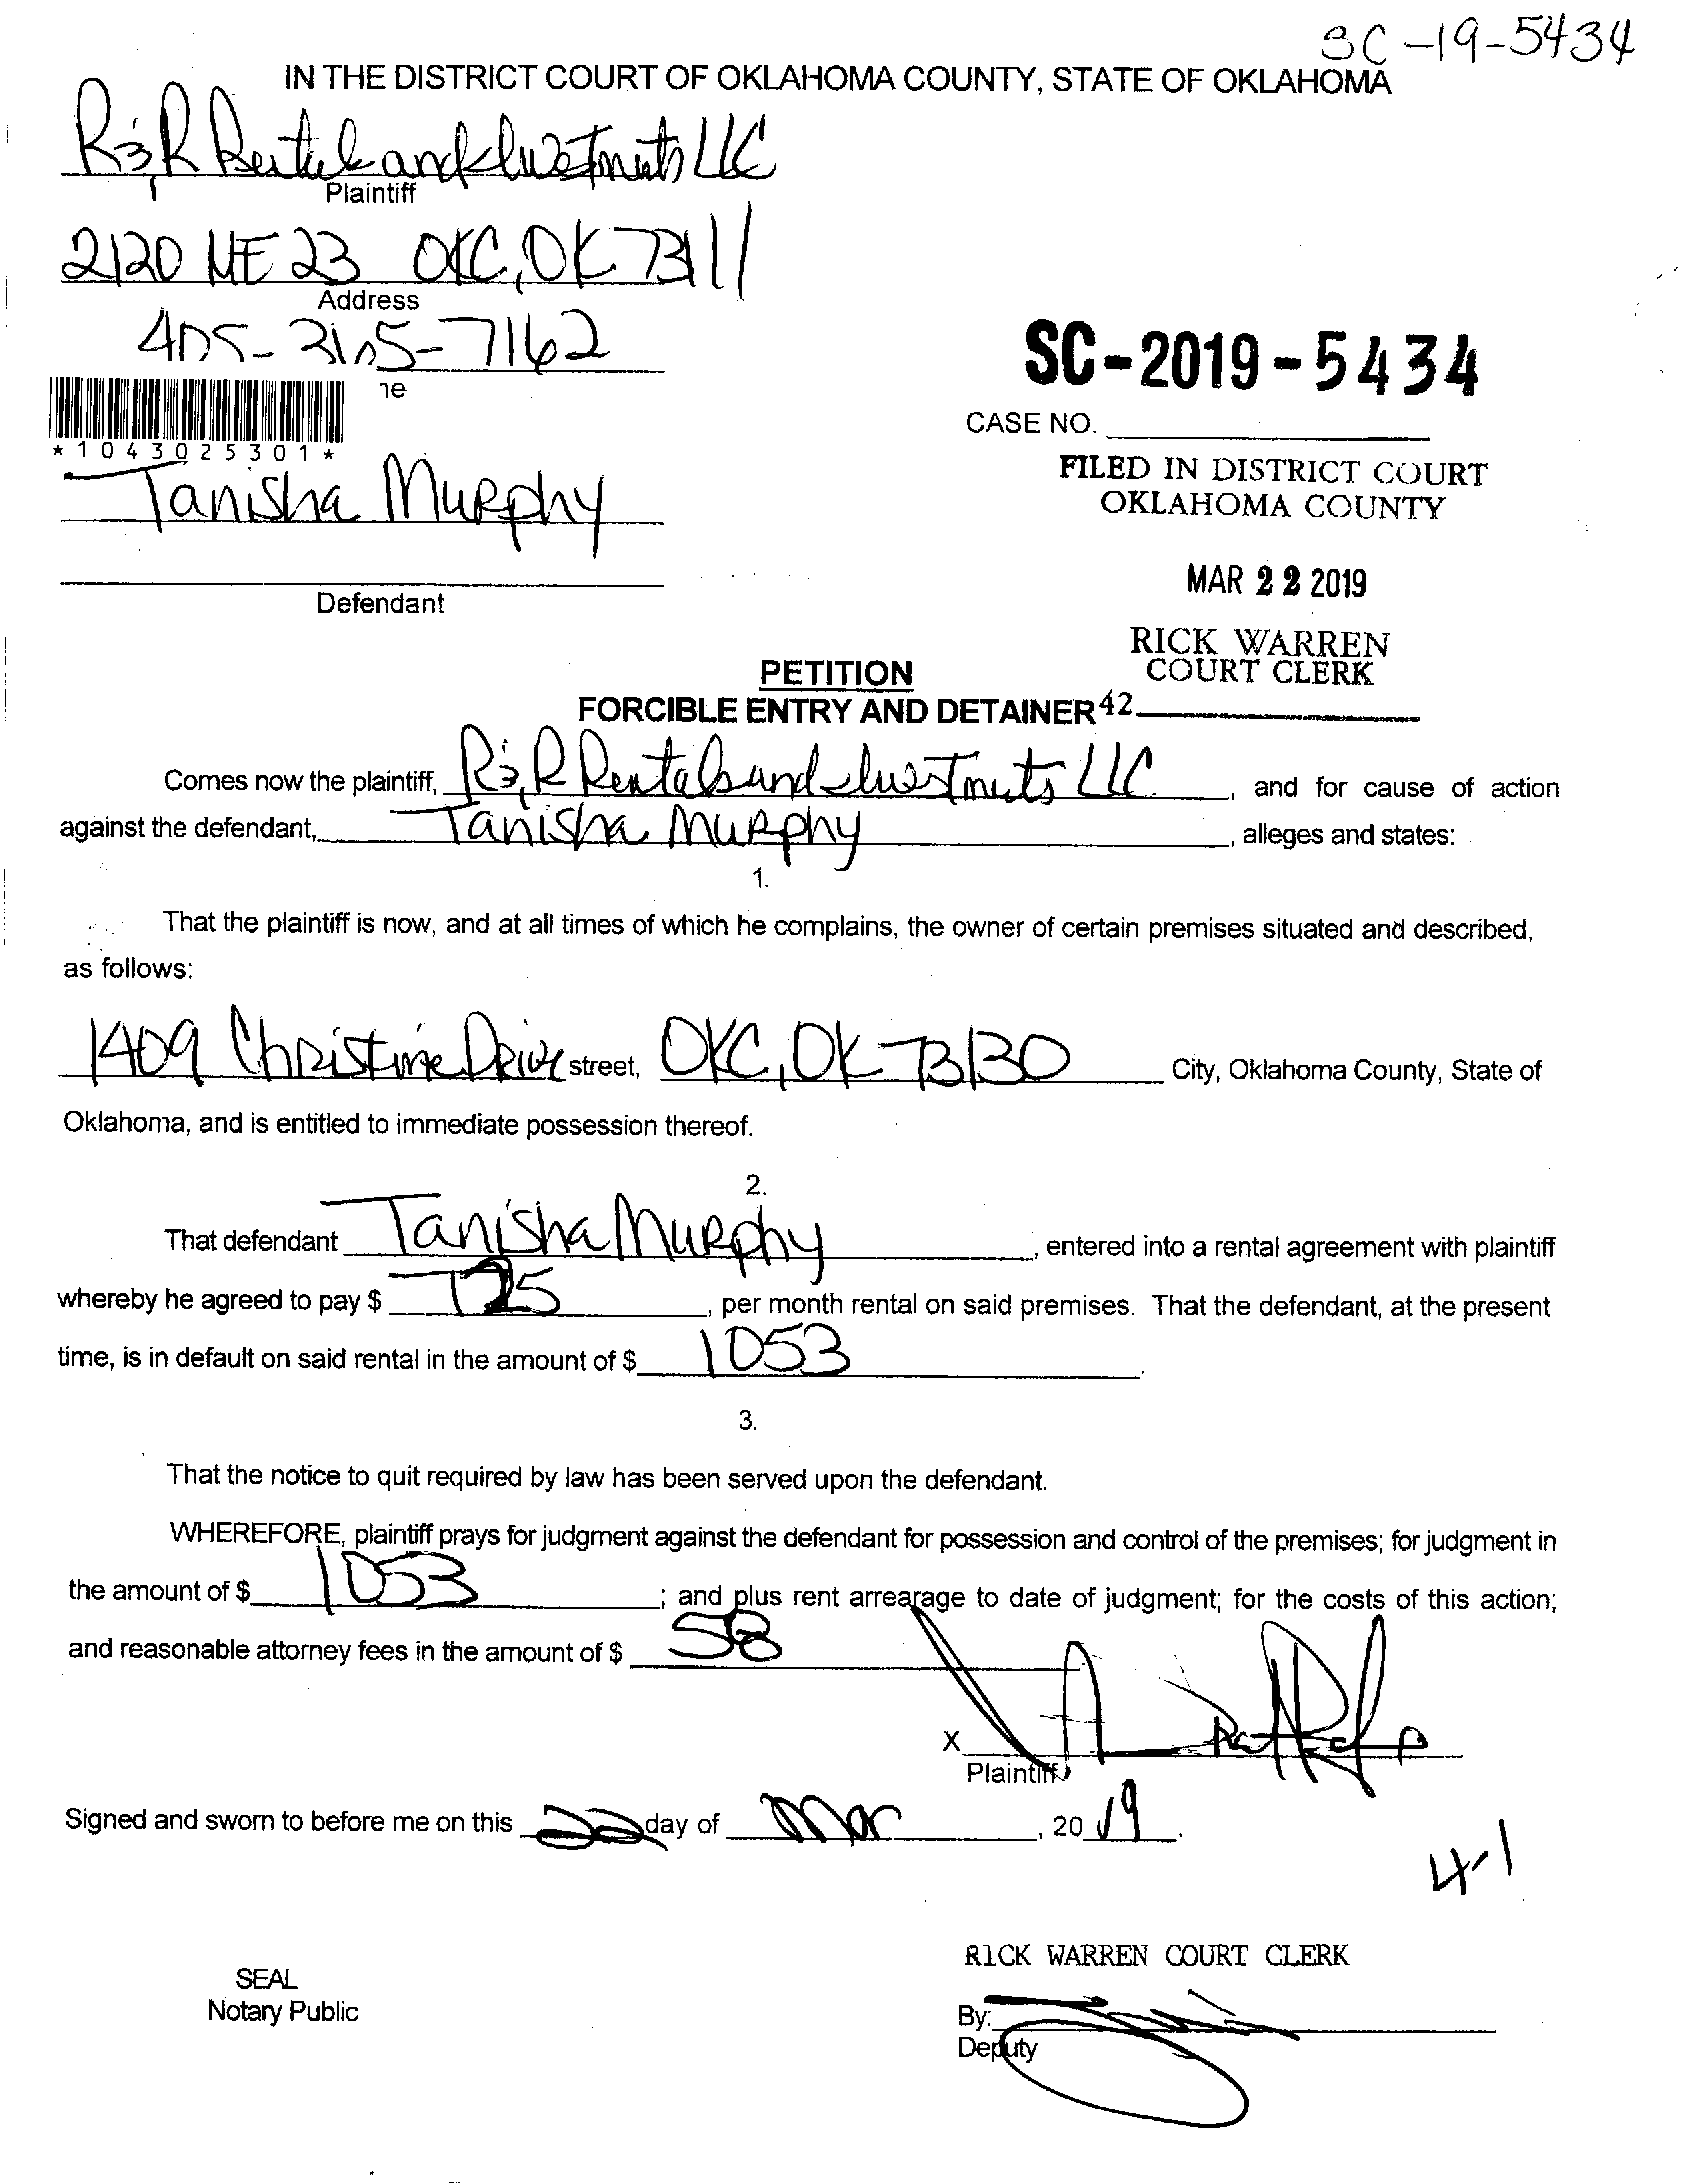 SC-19-5434
IN THE DISTRICT COURT OF OKLAHOMA COUNTY, STATE OF OKLAHOMA
R&R Rentals and Investments LLC
Plaintiff
2120 NE 23 OKC, OK 73111
Address
405-365-7162
ne
SC-2019-5434
CASE NO.
*1043025301*
FILED IN DISTRICT COURT
OKLAHOMA COUNTY
Tanisha Murphy
MAR 22 2019
Defendant
RICK WARREN
COURT CLERK
PETITION
FORCIBLE ENTRY AND DETAINER 42
Comes now the plaintiff, R&R Rentals and Investments LLC, and for cause of action
against the defendant, Tanisha Murphy, alleges and states:
1.
That the plaintiff is now, and at all times of which he complains, the owner of certain premises situated and described,
as follows:
1409 Christine Drive street, OKC, OK 73130 City, Oklahoma County, State of
Oklahoma, and is entitled to immediate possession thereof.
2.
That defendant Tanisha Murphy, entered into a rental agreement with plaintiff
whereby he agreed to pay $ 725, per month rental on said premises. That the defendant, at the present
time, is in default on said rental in the amount of $ 1053.
3.
That the notice to quit required by law has been served upon the defendant.
WHEREFORE, plaintiff prays for judgment against the defendant for possession and control of the premises; for judgment in
the amount of $ 1053; and plus rent arrearage to date of judgment; for the costs of this action;
and reasonable attorney fees in the amount of $ 58
X
Plaintiff
Signed and sworn to before me on this 22 day of Mar, 2019.
4-1
RICK WARREN COURT CLERK
SEAL
Notary Public
By:
Deputy